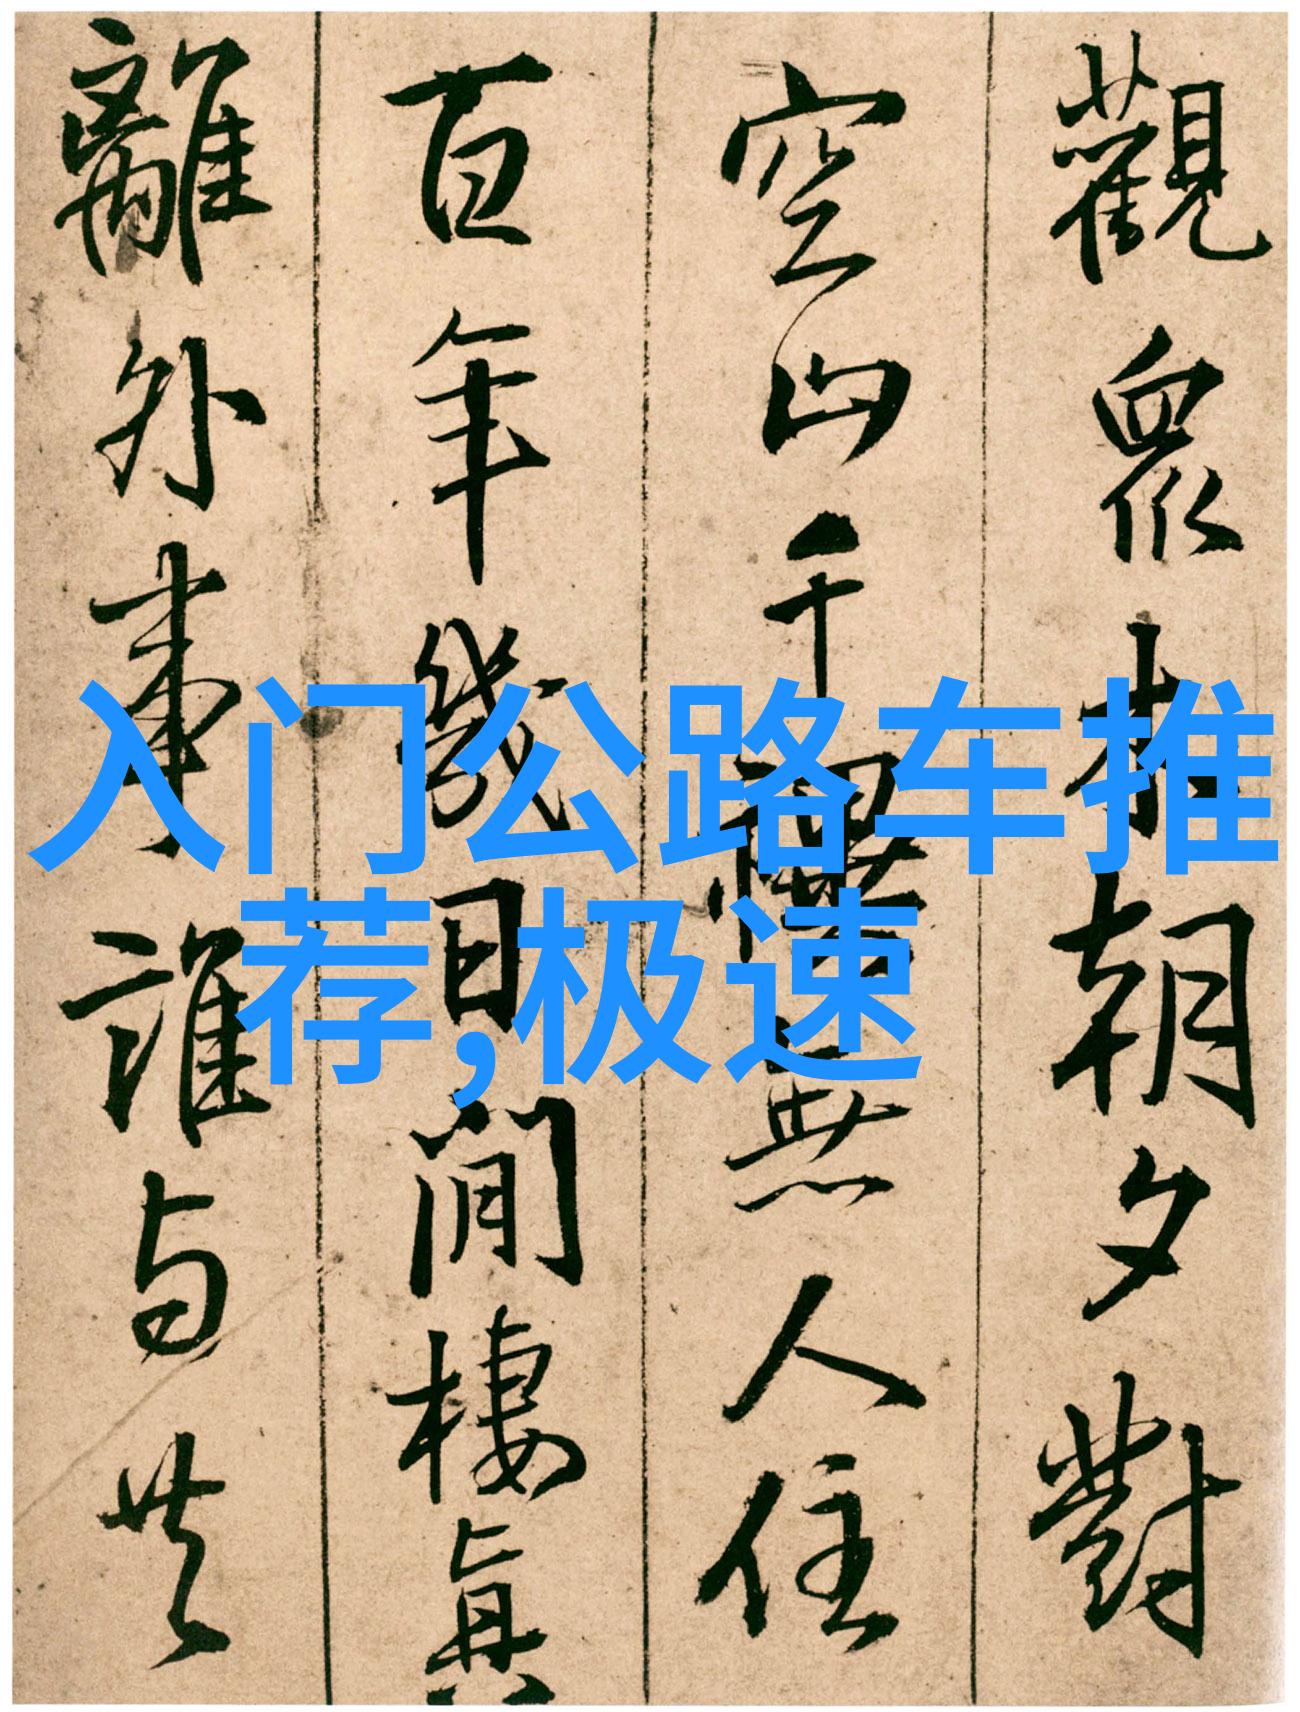 觀衆木朝夕對
空山千
無人住
百年幾日閒棲真
離外事誰与共
入门公路车推
荐,极速